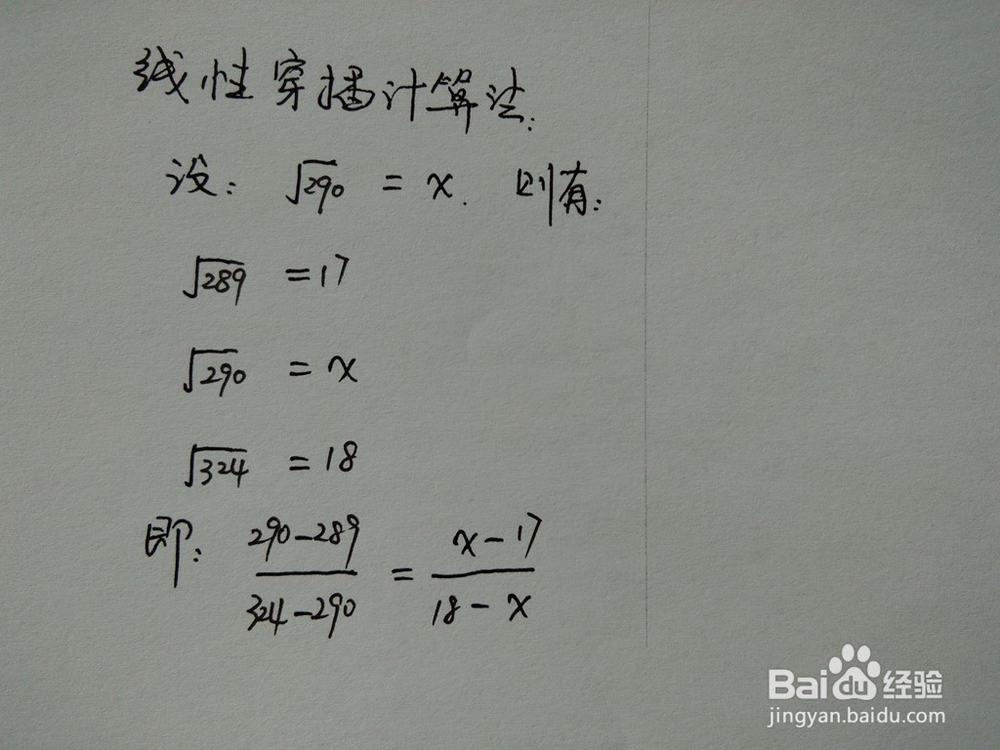 线性穿插计算法:
设: √290 = x. 则有:
√289 = 17
√290 = x
√324 = 18
即: (290-289)/(324-290) = (x-17)/(18-x)
Baidu经验
jingyan.baidu.com